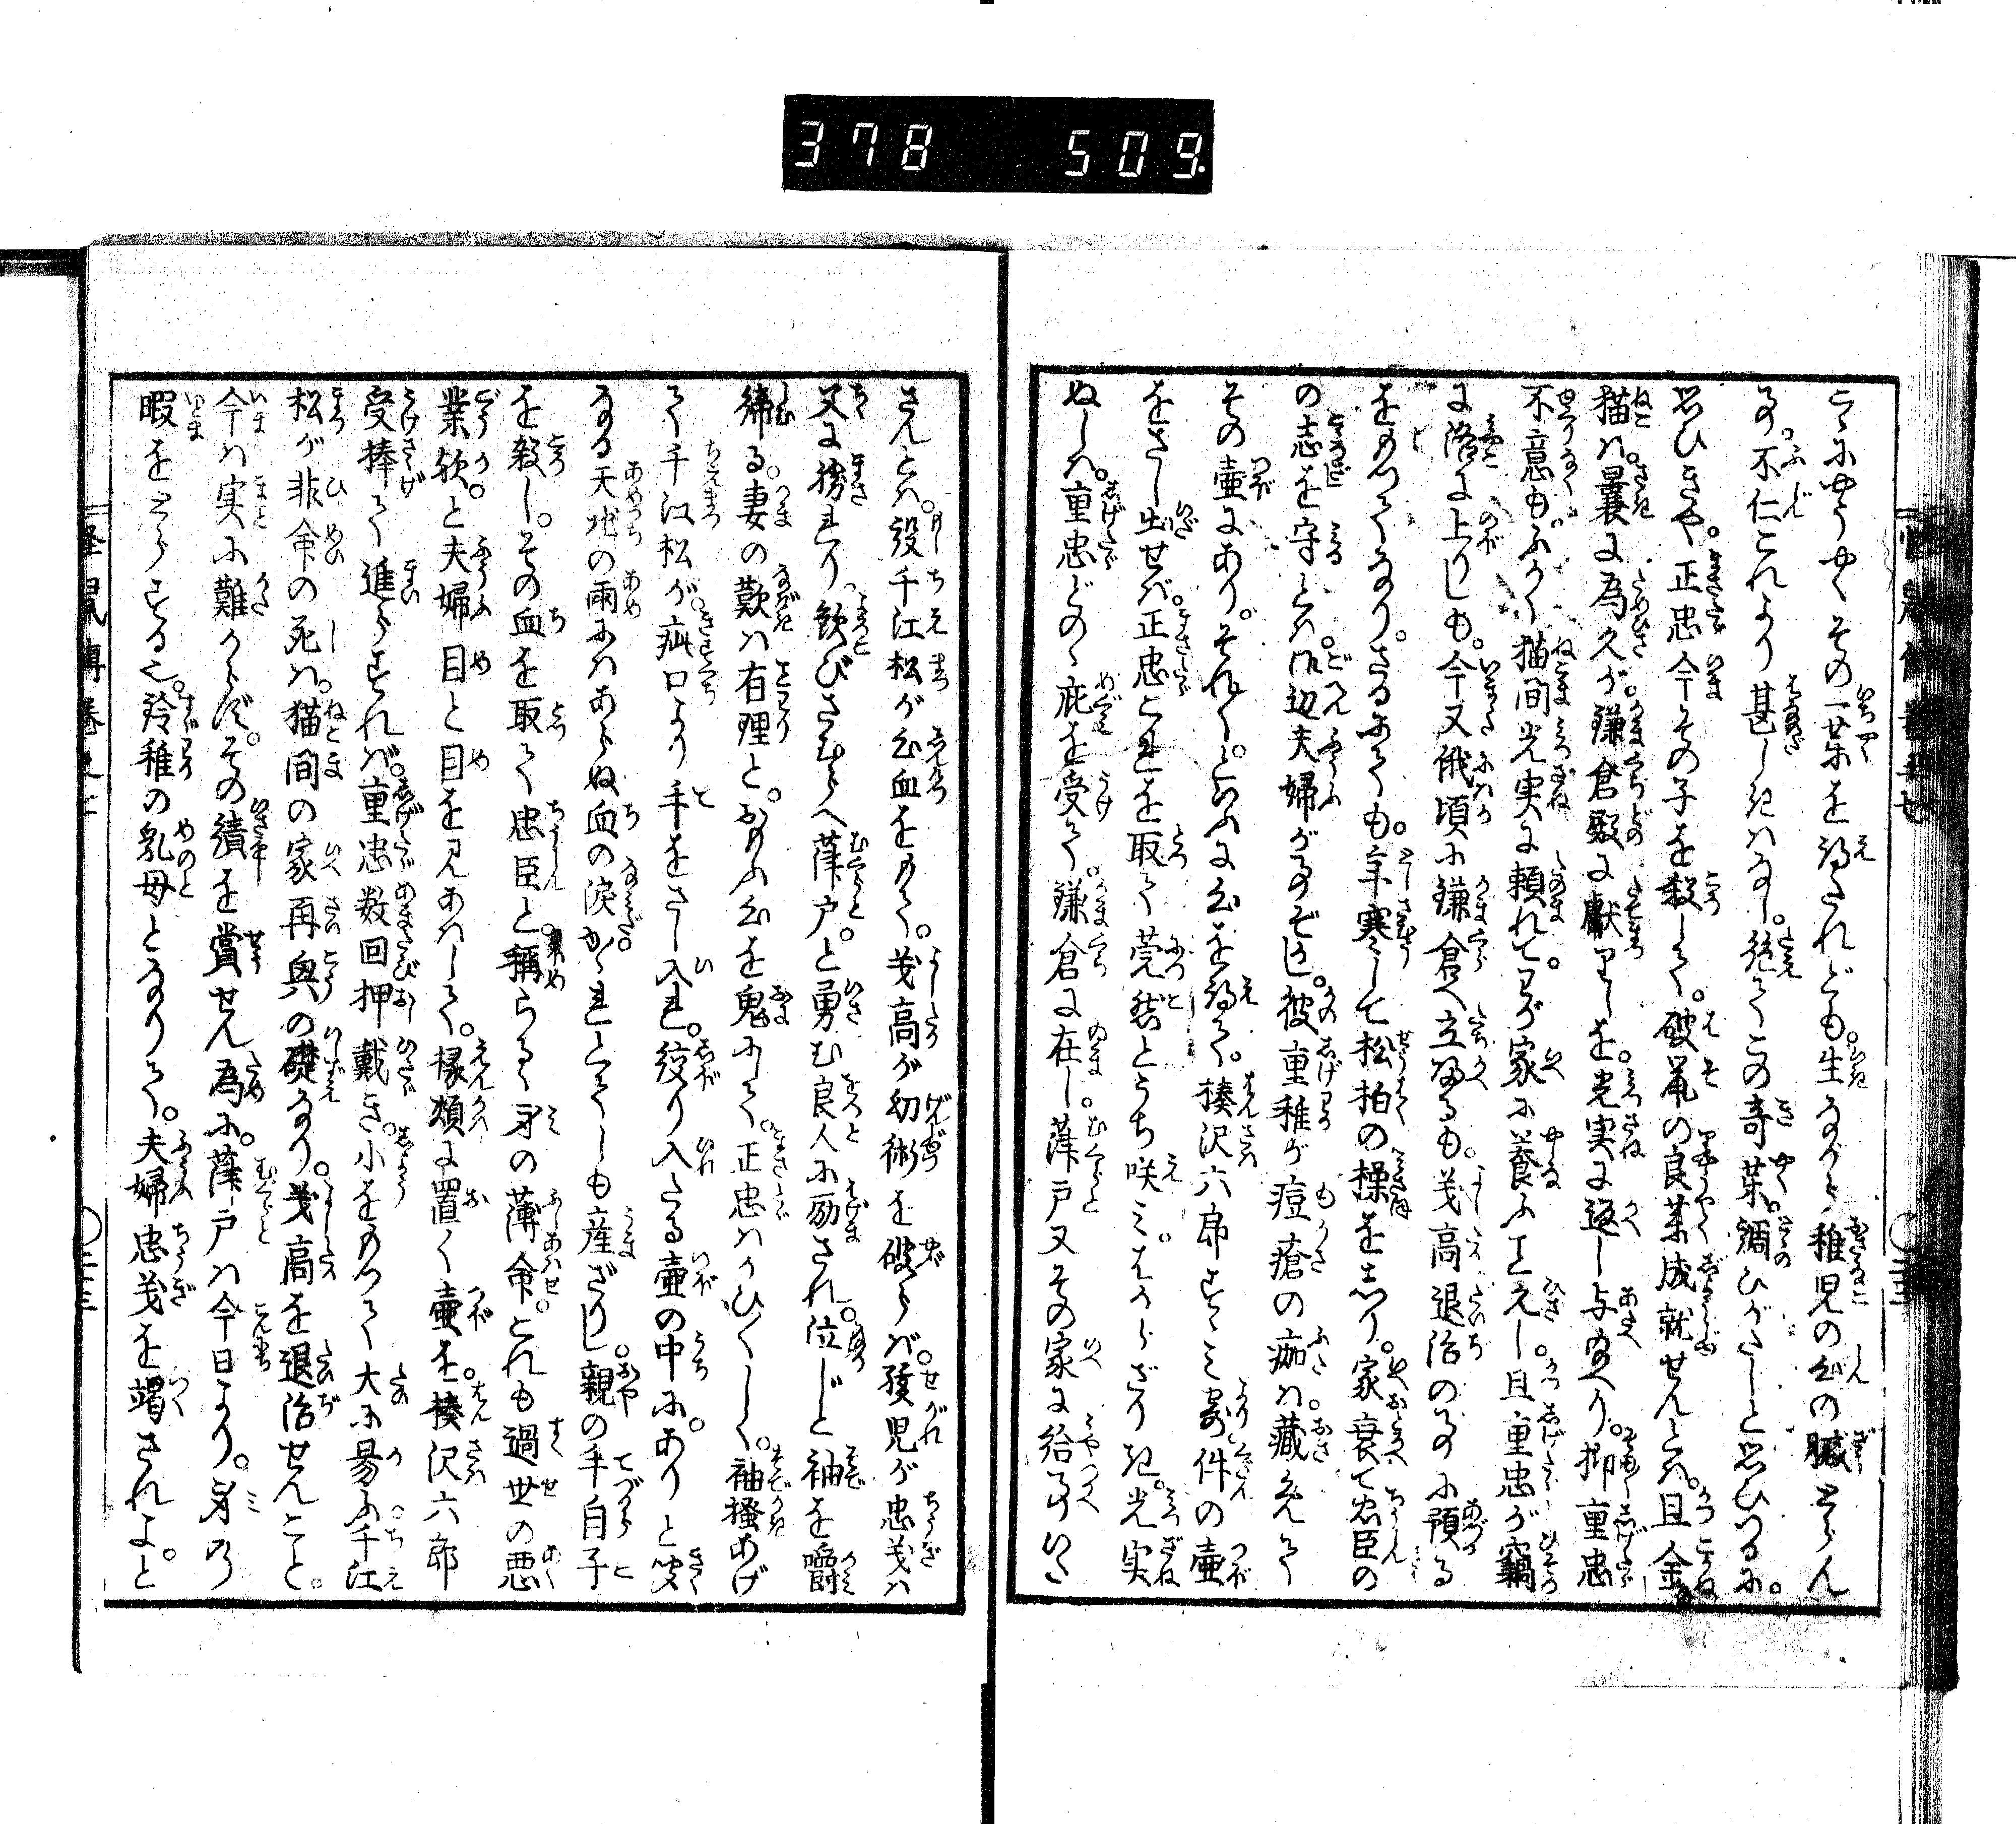 378 509
こゝにやうやくその一薬を得たれども。生ながら稚児の心の臓をとらん
事。不仁これより甚しきはなし。絶てこの奇薬。調ひがたしと思ひつるに。
思ひきや。正忠今その子を殺して。破鼠の良薬成就せんとは。且金
猫は。曩に為久が。鎌倉殿に献りしを。光実に返し与給へり。抑重忠
不意も。ふかく猫間光実に頼れて。わが家に養ふこと久し。且重忠が竊
に洛に上りしも。今又俄頃に鎌倉へ立帰るも。義高退治の事に預る
をもつてなり。さるにても。年寒して松柏の操をしり。家衰て忠臣の
の志を守とは。御辺夫婦が事ぞかし。彼重稚が痘瘡の痂は。蔵めて
その壷にあり。それ〳〵。といふに心を得て。榛沢六郎すゝみ寄件の壷
をさし出せば。正忠これを取て莞尓とうち咲み。はからざりき。光実
ぬしは。重忠どのゝ庇を受て。鎌倉に在し。薄戸又その家に給事いた
さんとは。殺千江松が心血をもて。義高が幻術を破らば。孩児が忠義は
父に勝れり。歓びさむらへ薄戸。と勇む良人に励され。泣じと袖を嚼
締る。妻の歎は有理と。おもふ心を鬼にして。正忠はかひ〴〵しく。袖掻あげ
て千江松が。疵口より手をさし入れ。絞り入たる壷の中に。ありと聞
なる天地の雨にはあらぬ血の涙。かゝれとてしも産ざりし。親の手自子
を殺し。その血を取て忠臣と。稱らるゝ身の薄命。これも過世の悪
業歟。と夫婦目と目を見あはして。椽頬に置く壷を。榛沢六郎
受捧て進らすれば。重忠数回押戴き。小をもつて大に易ふ千江
松が非命の死は。猫間の家再興の礎なり。義高を退治せんこと。
今は実に難からず。その績を賞せん為に。薄戸は今日より。身の
暇をとらするぞ。衿稚の乳母となりて。夫婦忠義を竭されよ。と